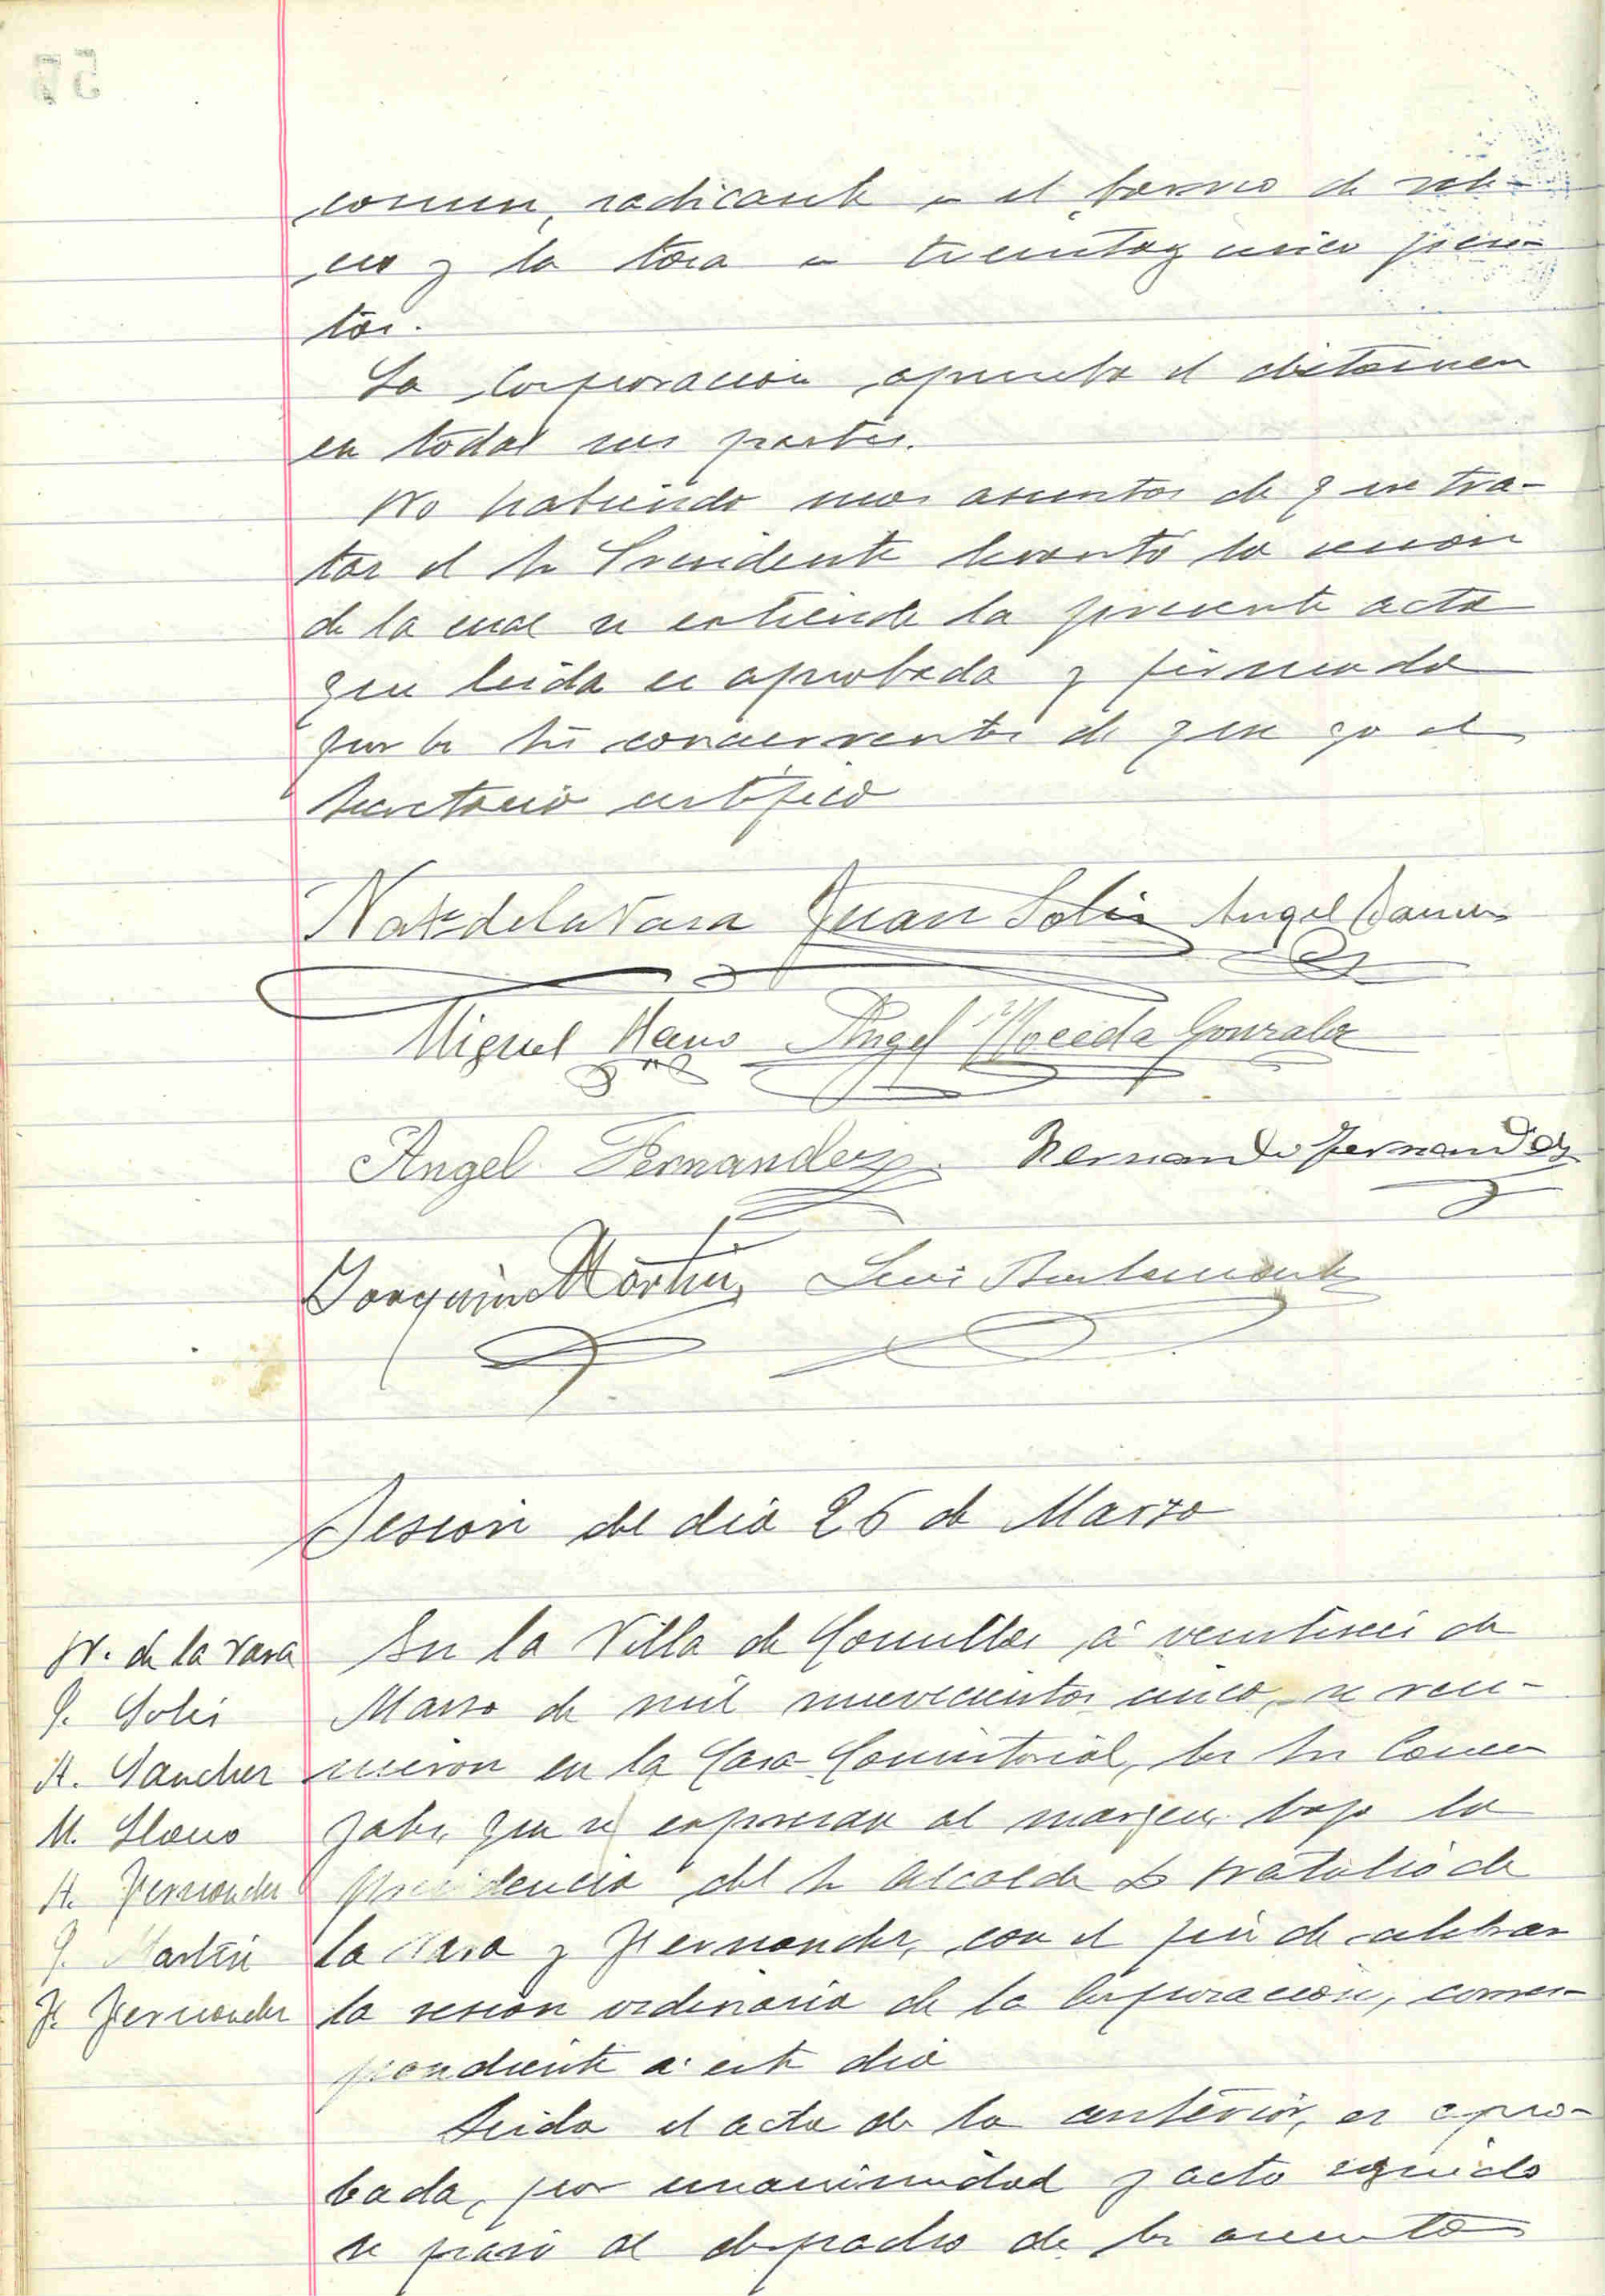 comun, radicante en el barrio de
y la tasa en treinta y cinco pese-
tas.
La Corporacion aprueba el dictamen
en todas sus partes.
No habiendo mas asuntos de que tra-
tar el Sr Presidente levantó la sesion
de la cual se extiende la presente acta
que leida es aprobada y firmada
por los Srs concurrentes de que yo el
Secretario certifico
Nat. de la Vara Juan Solis Angel
Miguel Llano Angel Noceda Gonzalez
Angel Fernandez Fernando Fernandez
Joaquin Martin Luis Bustamante
Sesion del dia 26 de Marzo
N. de la Vara
J. Solis
A. Sanchez
M. Llano
A. Fernandez
J. Martin
F. Fernandez
En la Villa de Comillas á veintiseis de
Marzo de mil novecientos cinco, se reu-
nieron en la Casa Consistorial, los Srs Conce
jales, que se expresan al margen, bajo la
presidencia del Sr Alcalde D Natalio de
la Vara y Fernandez, con el fin de celebrar
la sesion ordinaria de la Corporacion, corres-
pondiente a este dia
Leida el acta de la anterior, es apro-
bada, por unanimidad y acto seguido
se pasó al despacho de los asuntos